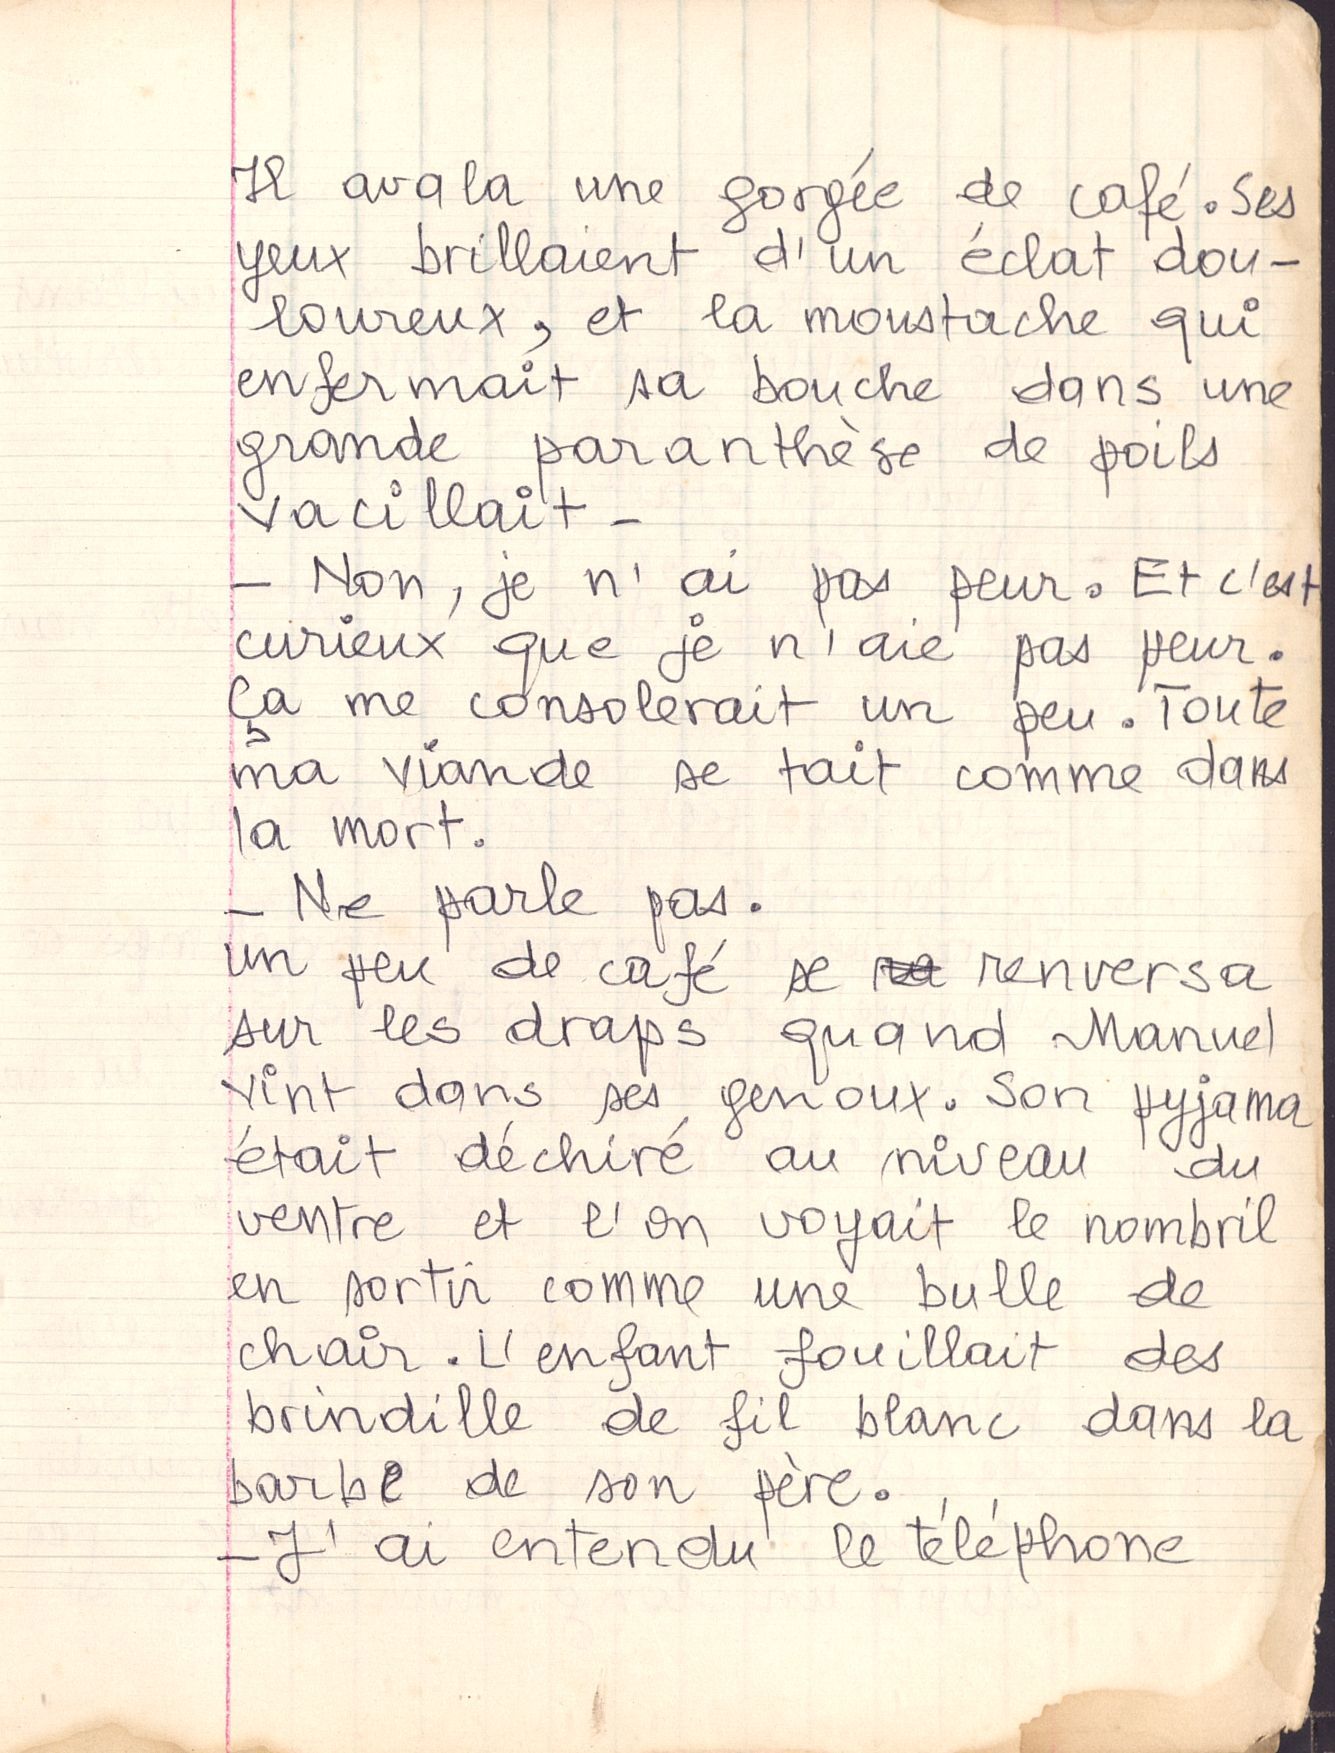 Il avala une gorgée de café. Ses
yeux brillaient d'un éclat dou-
loureux, et la moustache qui
enfermait sa bouche dans une
grande paranthèse de poils
vacillait -
- Non, je n'ai pas peur. Et c'est
curieux que je n'aie pas peur.
Ça me consolerait un peu. Toute
ma viande se tait comme dans
la mort.
- Ne parle pas.
un peu de café se renversa
sur les draps quand Manuel
vint dans ses genoux. Son pyjama
était déchiré au niveau du
ventre et l'on voyait le nombril
en sortir comme une bulle de
chair. L'enfant fouillait des
brindille de fil blanc dans la
barbe de son père.
- J'ai entendu le téléphone